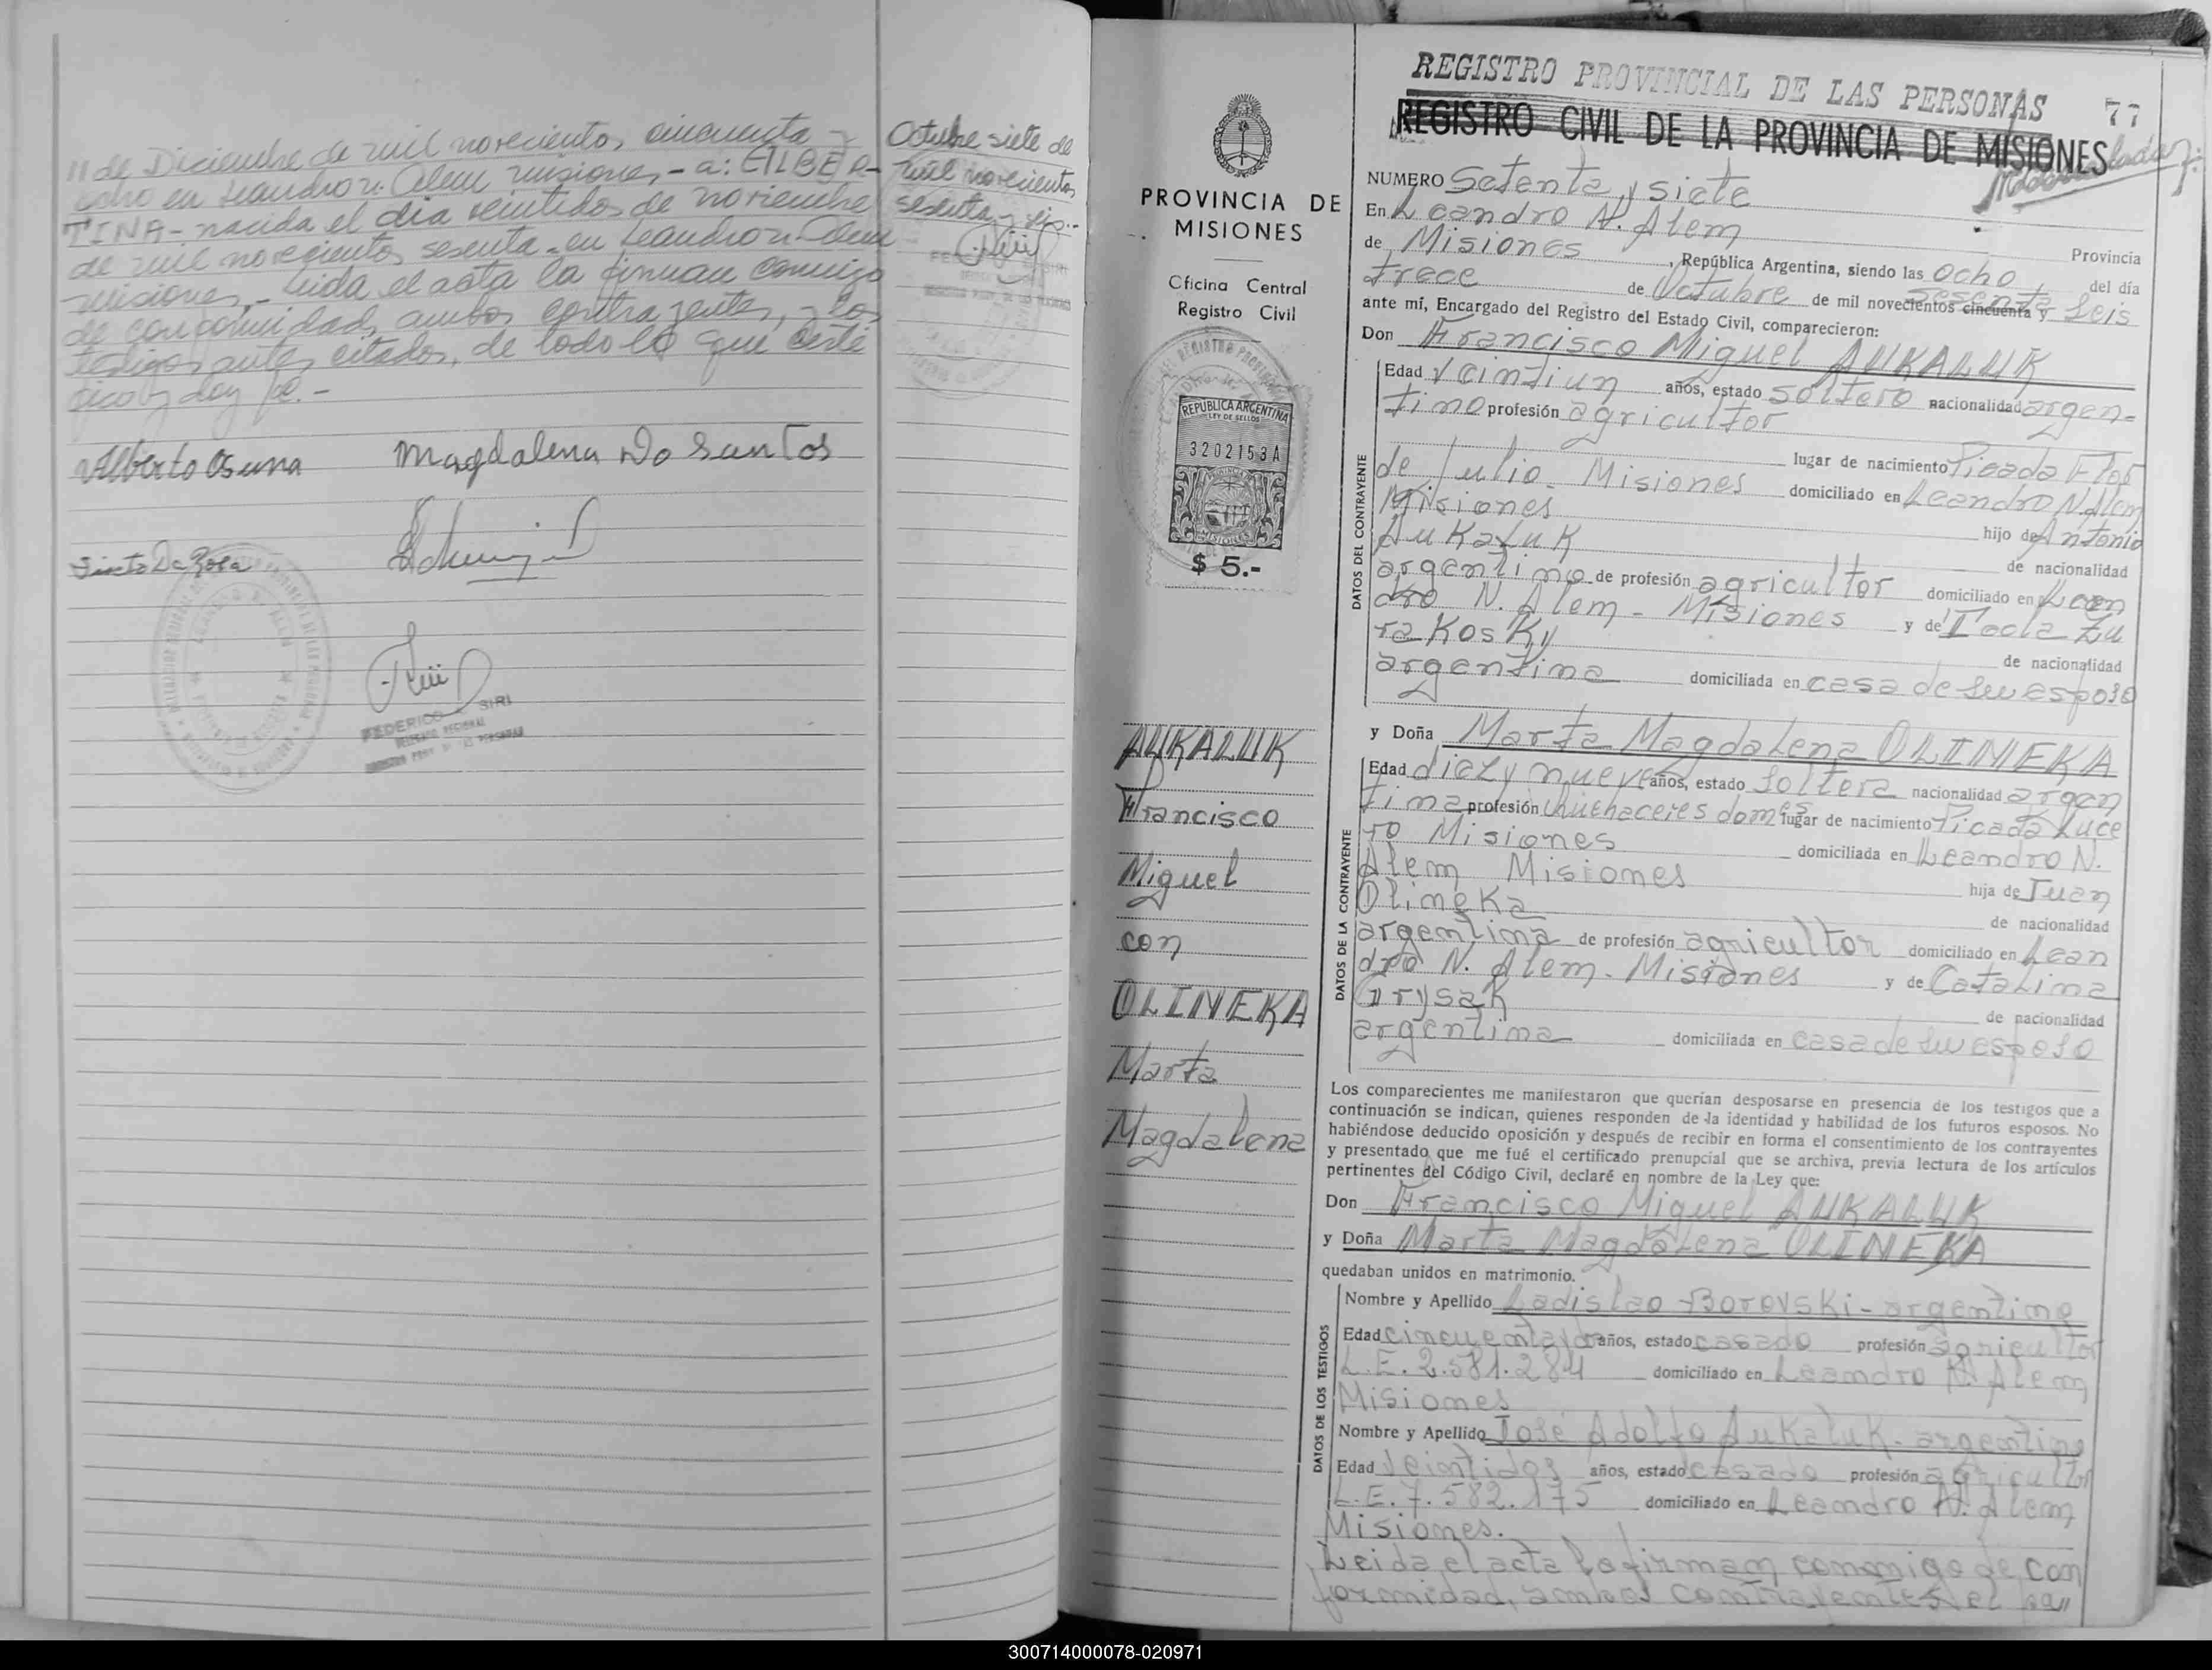 11 de Diciembre de mil novecientos cincuenta y
ocho en Leandro N. Alem misiones,- a: ELBER-
TINA- nacida el día veintidos de noviembre
de mil novecientos sesenta - en Leandro N. Alem
misiones,- Leida el acta la firman conmigo
de conformidad, ambos contrayentes, y los
testigos antes citados, de todo lo que certi
fico y doy fé.-
Octubre siete de
mil novecientos
sesenta y seis.-
Alberto Osuna Magdalena Do Santos
Sixto Da Rosa
FEDERICO SIRI
DELEGADO REGIONAL
REGISTRO PROV. DE LAS PERSONAS
PROVINCIA DE
MISIONES
Oficina Central
Registro Civil
REPUBLICA ARGENTINA
LEY DE SELLOS
3202153A
MISIONES
$ 5.-
AUKALUK
Francisco
Miguel
con
OLINEKA
Marta
Magdalena
REGISTRO PROVINCIAL DE LAS PERSONAS 77
REGISTRO CIVIL DE LA PROVINCIA DE MISIONES
NUMERO Setenta y siete
En Leandro N. Alem Provincia
de Misiones, República Argentina, siendo las ocho del día
trece de Octubre de mil novecientos cincuenta y sesenta y seis
ante mí, Encargado del Registro del Estado Civil, comparecieron:
Don Francisco Miguel AUKALUK
DATOS DEL CONTRAYENTE
Edad veintiun años, estado soltero nacionalidad argen-
tino profesión agricultor
lugar de nacimiento Picada Flor
de Julio. Misiones domiciliado en Leandro N. Alem
Misiones hijo de Antonio
Aukaluk de nacionalidad
argentino de profesión agricultor domiciliado en Lean
dro N. Alem - Misiones y de Tecla Zu
rakosky de nacionalidad
argentina domiciliada en casa de su esposo
y Doña Marta Magdalena OLINEKA
DATOS DE LA CONTRAYENTE
Edad diez y nueve años, estado soltera nacionalidad argen
tina profesión quehaceres domés lugar de nacimiento Picada Luce
ro Misiones domiciliada en Leandro N.
Alem Misiones hija de Juan
Olineka de nacionalidad
argentina de profesión agricultor domiciliado en Lean
dro N. Alem. Misiones y de Catalina
Grysak de nacionalidad
argentina domiciliada en casa de su esposo
Los comparecientes me manifestaron que querían desposarse en presencia de los testigos que a
continuación se indican, quienes responden de la identidad y habilidad de los futuros esposos. No
habiéndose deducido oposición y después de recibir en forma el consentimiento de los contrayentes
y presentado que me fué el certificado prenupcial que se archiva, previa lectura de los artículos
pertinentes del Código Civil, declaré en nombre de la Ley que:
Don Francisco Miguel AUKALUK
y Doña Marta Magdalena OLINEKA
quedaban unidos en matrimonio.
DATOS DE LOS TESTIGOS
Nombre y Apellido Ladislao Borovski - argentino
Edad cincuenta y dos años, estado casado profesión agricultor
L.E. 2.581.284 domiciliado en Leandro N. Alem
Misiones
Nombre y Apellido José Adolfo Aukaluk. argentino
Edad Veintidos años, estado casado profesión agricultor
L.E. 7.582.175 domiciliado en Leandro N. Alem
Misiones.
Leida el acta la firman conmigo de con
formidad, ambos contrayentes el pa"
300714000078-020971